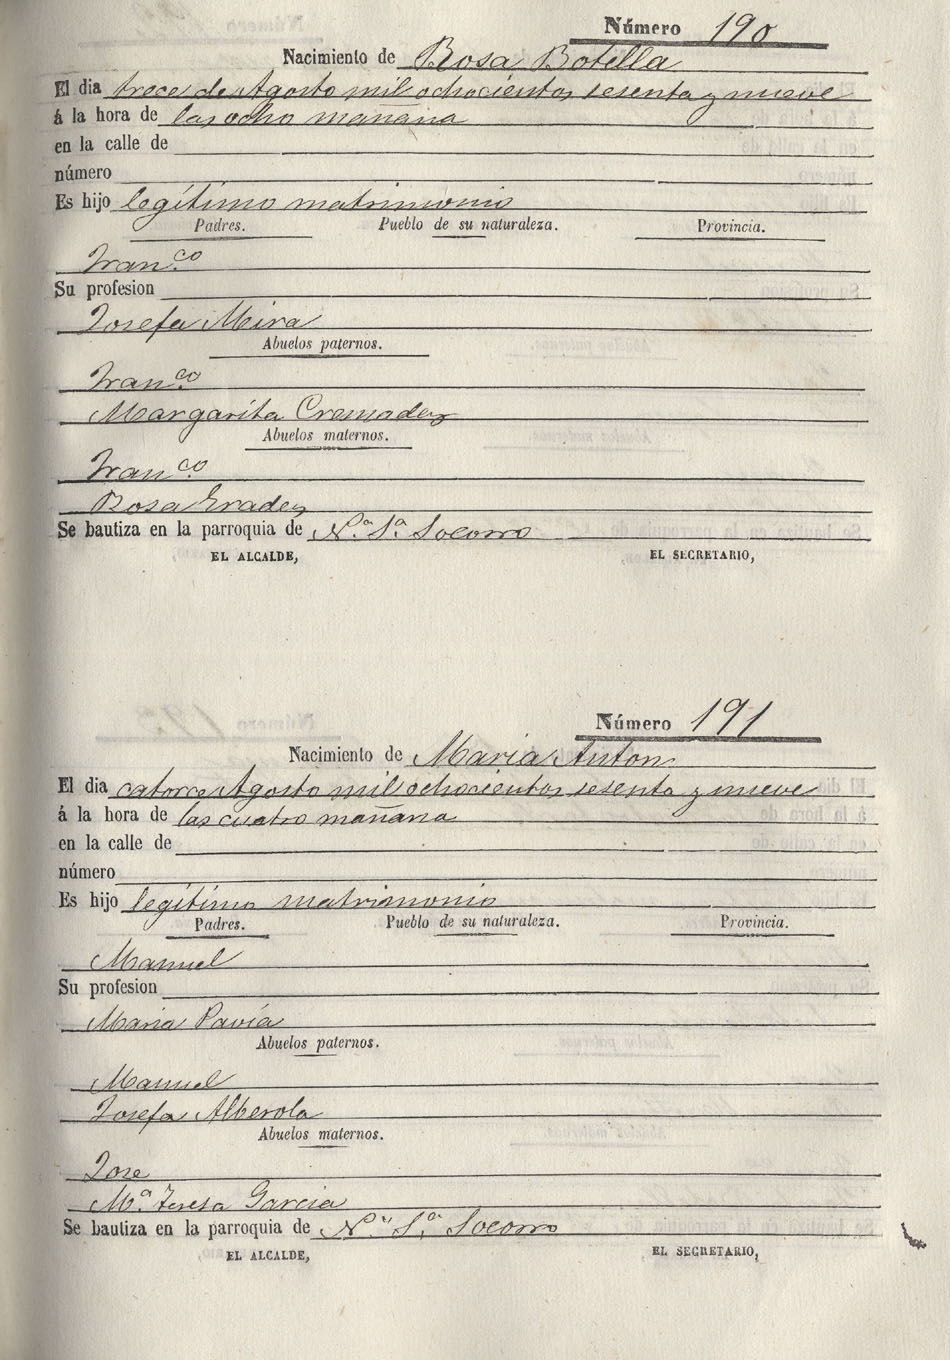 Número 190
Nacimiento de Rosa Botella
El dia trece de Agosto mil ochocientos sesenta y nueve
á la hora de las ocho mañana
en la calle de
número
Es hijo legítimo matrimonio
Padres. Pueblo de su naturaleza. Provincia.
Fran.co
Su profesion
Josefa Mira
Abuelos paternos.
Fran.co
Margarita Cremades
Abuelos maternos.
Fran.co
Rosa Erades
Se bautiza en la parroquia de N.a S.a Socorro
EL ALCALDE, EL SECRETARIO,
Número 191
Nacimiento de Maria Anton
El dia catorce Agosto mil ochocientos sesenta y nueve
á la hora de las cuatro mañana
en la calle de
número
Es hijo legítimo matrimonio
Padres. Pueblo de su naturaleza. Provincia.
Manuel
Su profesion
Maria Pavía
Abuelos paternos.
Manuel
Josefa Alberola
Abuelos maternos.
Jose
M.a Teresa Garcia
Se bautiza en la parroquia de N.a S.a Socorro
EL ALCALDE, EL SECRETARIO,